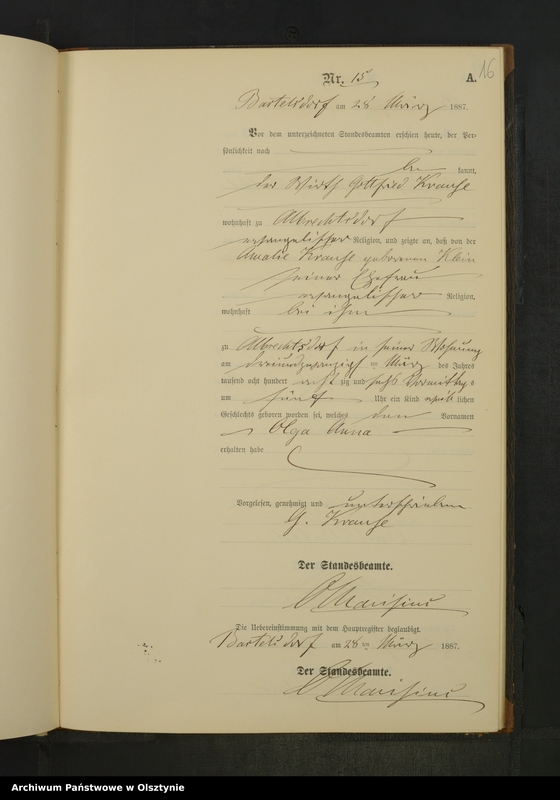 16
Nr. 15 A.
Bartelsdorf am 28 März 1887.
Vor dem unterzeichneten Standesbeamten erschien heute, der Per-
sönlichkeit nach
be kannt,
der Wirth Gottfried Krause
wohnhaft zu Albrechtsdorf
evangelischer Religion, und zeigte an, daß von der
Amalie Krause geborenen Klein
seiner Ehefrau
evangelischer Religion,
wohnhaft bei ihm
zu Albrechtsdorf in seiner Wohnung
am dreiundzwanzigsten März des Jahres
tausend acht hundert acht zig und sechs Vormittags
um fünf Uhr ein Kind weib lichen
Geschlechts geboren worden sei, welches den Vornamen
Olga Anna
erhalten habe
Vorgelesen, genehmigt und unterschrieben
G. Krause
Der Standesbeamte.
Die Uebereinstimmung mit dem Hauptregister beglaubigt.
Bartelsdorf am 28 ten März 1887.
Der Standesbeamte.
Archiwum Państwowe w Olsztynie